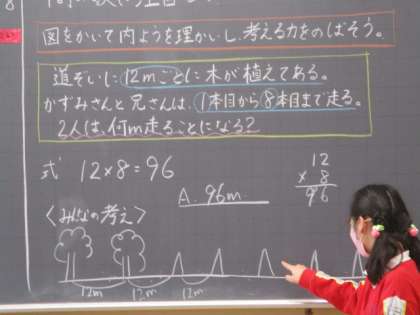 図をかいて内ようを理かいし、考える力をのばそう。
道ぞいに12mごとに木が植えてある。
かずみさんと兄さんは、1本目から8本目まで走る。
2人は、何m走ることになる?
式 12×8=96
A. 96m
12
×8
96
<みんなの考え>
12m 12m 12m